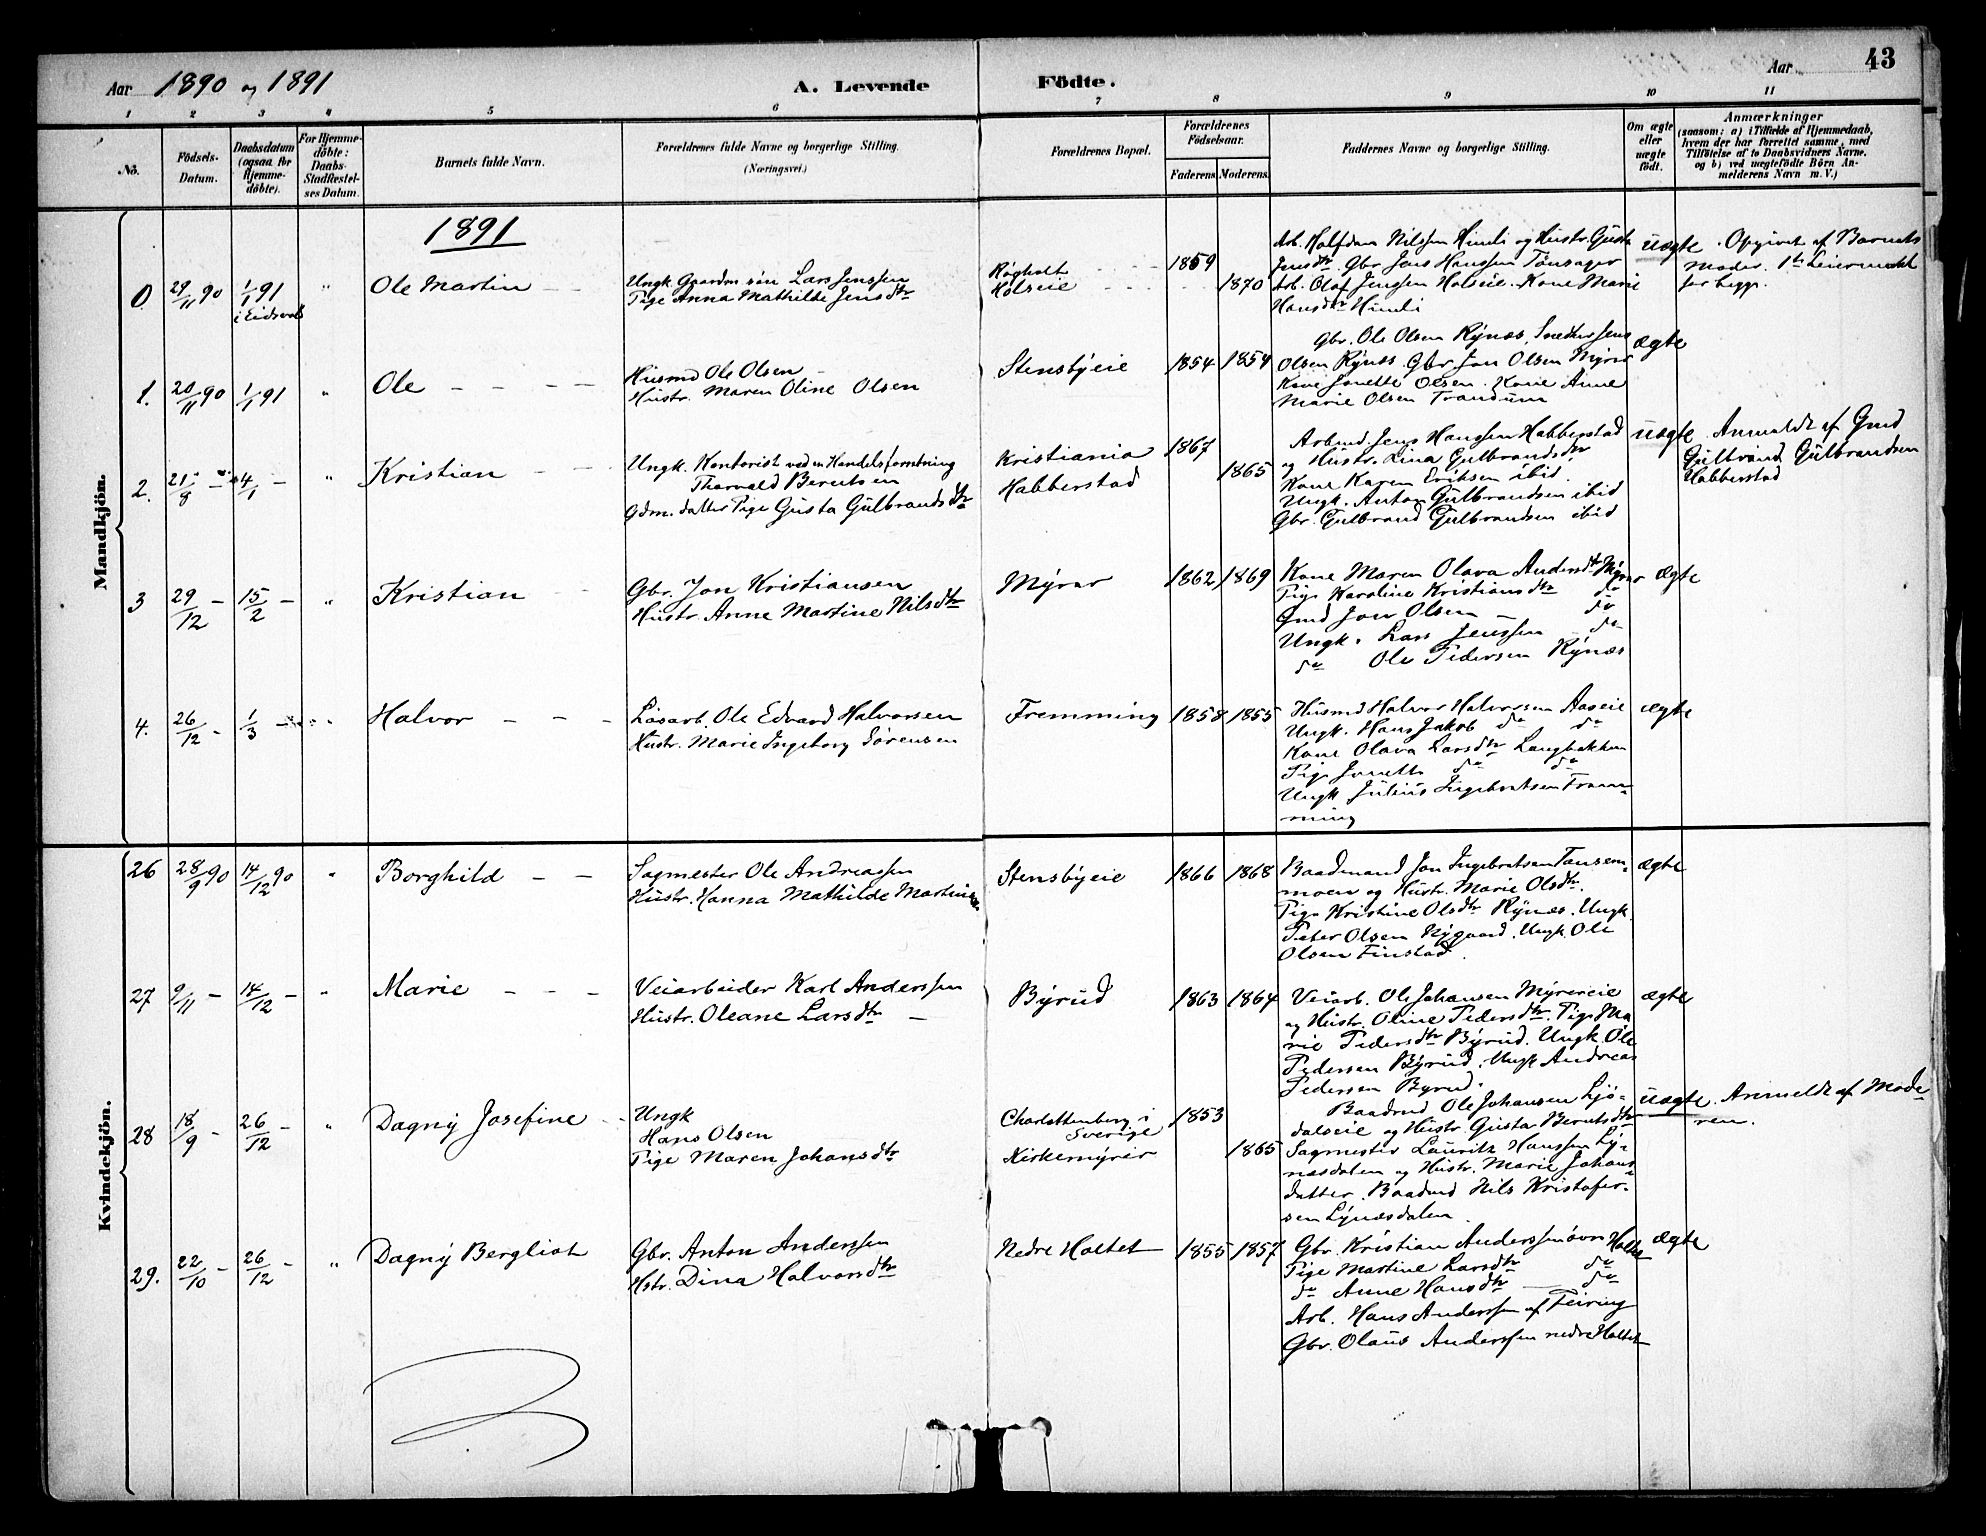 Aar 1890 og 1891
A. Levende Födte.
Aar 43
1 2 3 4 5 6 7 8 9 10 11
No.
Födsels-
Datum.
Daabsdatum
(ogsaa for
Hjemme-
döbte).
For Hjemme-
döbte:
Daabs-
Stadfæstel-
ses Datum.
Barnets fulde Navn.
Forældrenes fulde Navne og borgerlige Stilling.
(Næringsvei.)
Forældrenes Bopæl.
Forældrenes
Födselsaar.
Faderens. Moderens.
Faddernes Navne og borgerlige Stilling.
Om ægte
eller
uægte
födt.
Anmærkninger
(saasom: a) i Tilfælde af Hjemmedaab,
hvem der har forrettet samme, med
Tilföielse af to Daabsvidners Navne.
og b) ved uægtefödte Börn An-
melderens Navn m. V.)
Mandkjön.
1891
0. 29/11 90 1/1 91 i Eidsvold " Ole Martin
Ungk Gaardm. søn Lars Jenssen
Pige Anna Mathilde Jensdtr
Røgholt
Holseie
1859
1870
Arb. Halfdan Nilssen Himli og Hustr. Gusta
Jensdtr. Gbr. Jens Hanssen Tønsager
Arb. Olaf Jenssen Holseie. Kone Marie
Hansdtr Himli
uægte
Opgivet af Barnets
Moder. 1ste Leiermaal
for begge.
1. 20/11 90 1/1 91 " Ole
Husmd Ole Olsen
Hustr. Maren Oline Olsen
Stensbyeie 1854 1854
Gbr. Ole Olsen Rynæs, Snedker Jens
Olsen Rynæs. Gbr. Jon Olsen Myrer
Kone Jonette Olsen. Kone Anne
Marie Olsen Trandum
ægte
2. 21/8 - 4/1 - " Kristian
Ungk. Kontorist ved en Handelsforretning
Thorvald Berntsen
Gdm. datter Pige Gusta Gulbrandsdtr
Kristiania
Habberstad
1867
1865
Arbmd. Jens Hanssen Habberstad
og Hustr. Lina Gulbrandsdtr
Kone Karen Eriksen ibid.
Ungk. Anton Gulbrandsen ibid
Gbr. Gulbrand Gulbrandsen ibid
uægte
Anmeldt af Gmd
Gulbrand Gulbrandsen
Habberstad
3 29/12 - 15/2 - " Kristian
Gbr. Jon Kristiansen
Hustr. Anne Martine Nilsdtr
Myrer 1862 1869
Kone Maren Olava Andersdtr Myrer
Pige Karoline Kristiansdtr do
Gmd Jon Olsen - do
Ungk. Lars Jenssen do
do Ole Pedersen Rynæs
ægte
4. 26/12 - 1/3 - " Halvor
Løsarb. Ole Edvard Halvorsen
Hustr. Marie Ingeborg Sørensen
Fremming 1858 1855
Husmd Halvor Halvorsen Aaseie
Ungk. Hans Jakob do do
Kone Olava Larsdtr Langbakken
Pige Jonette do do
Ungk Julius Ingebretsen Frem-
ming
ægte
Kvindekjön.
26 28/9 90 14/12 90 " Borghild
Sagmester Ole Andreassen
Hustr. Hanna Mathilde Martinsen
Stensbyeie 1866 1868
Baadmand Jon Ingebretsen Tansem-
moen og Hustr. Marie Olsdtr.
Pige Kristine Olsdtr Rynæs. Ungk.
Peter Olsen Nygaard. Ungk. Ole
Olsen Finstad.
ægte
27 9/11 - 14/12 - " Marie
Veiarbeider Karl Anderssen
Hustr. Oleane Larsdtr
Byrud 1863 1864
Veiarb. Ole Johansen Myrereie
og Hustr. Oline Pedersdtr. Pige Ma
rie Pedersdtr Byrud. Ungk. Ole
Pedersen Byrud. Ungk Andreas
Pedersen Byrud.
ægte
28 18/9 - 26/12 - " Dagny Josefine
Ungk
Hans Olsen
Pige Maren Johansdtr
Charlottenberg i
Sverige
Kirkemyrer
1853
1865
Baadmd Ole Johansen Ljø-
dalseie og Hustr. Gusta Berntsdtr
Sagmester Lauritz Hanssen Ly-
næsdalen og Hustr. Marie Johans-
datter. Baadmd Nils Kristofer-
sen Lynæsdalen.
uægte
Anmeldt af Mode
ren.
29. 22/10 - 26/12 - " Dagny Bergliot
Gbr. Anton Anderssen
Hstr. Dina Halvorsdtr
Nedre Holtet 1855 1857
Gbr. Kristian Anderssen øvre Holtet
Pige Martine Larsdtr do
do Anne Hansdtr do
Arb. Hans Anderssen af Feiring
Gbr. Olaus Anderssen nedre Holtet
ægte